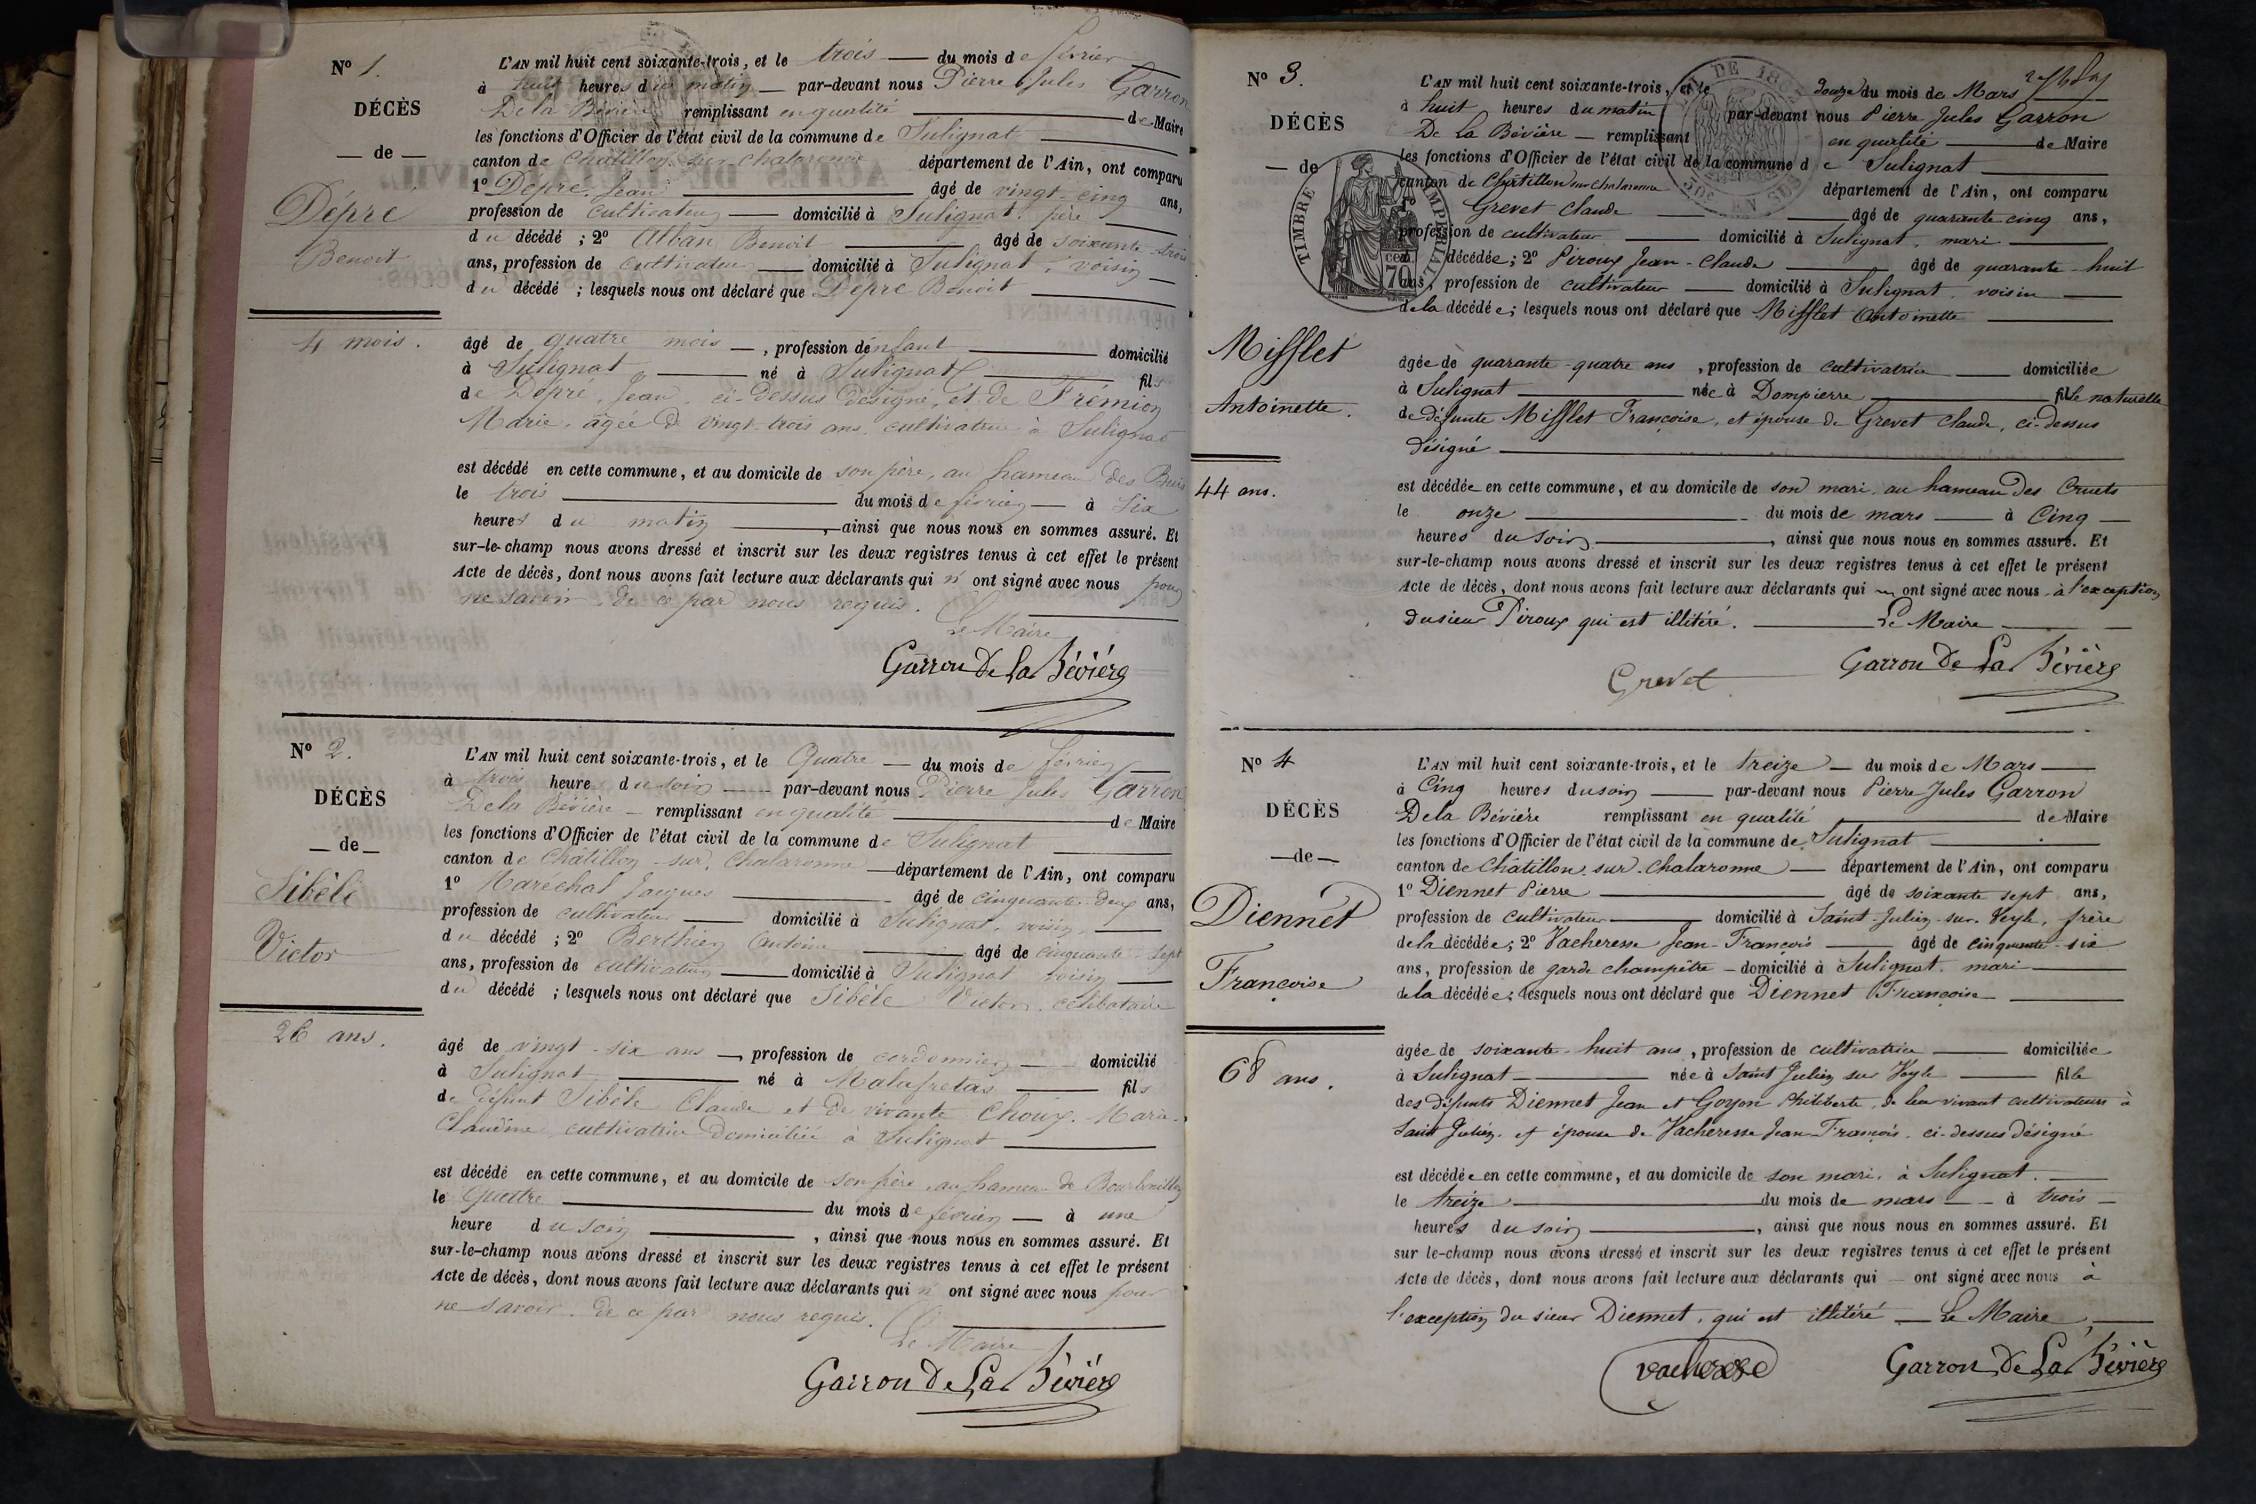 N° 1.
DÉCÈS
de
Dépré
Benoit
4 mois.
L'AN mil huit cent soixante-trois, et le trois du mois de février
à huit heures du matin par-devant nous Pierre Jules Garron
De la Bévière remplissant en qualité de Maire
les fonctions d'Officier de l'état civil de la commune de Sulignat
canton de Chatillon sur chalaronne département de l'Ain, ont comparu
1° Dépré, Jean âgé de vingt-cinq ans,
profession de cultivateur domicilié à Sulignat, père
du décédé ; 2° Alban Benoit âgé de soixante-trois
ans, profession de cultivateur domicilié à Sulignat, voisin
du décédé ; lesquels nous ont déclaré que Dépré Benoit
âgé de quatre mois, profession d'enfant domicilié
à Sulignat né à Sulignat fils
de Dépré, Jean, ci-dessus désigné, et de Frémion
Marie, âgée de vingt-trois ans, cultivatrice à Sulignat
est décédé en cette commune, et au domicile de son père, au hameau des
le trois du mois de février à six
heures du matin, ainsi que nous nous en sommes assuré. Et
sur-le-champ nous avons dressé et inscrit sur les deux registres tenus à cet effet le présent
Acte de décès, dont nous avons fait lecture aux déclarants qui n'ont signé avec nous pour
ne savoir, de ce par nous requis.
Le Maire
Garron De La Bévière
N° 2.
DÉCÈS
de
Sibèle
Victor
26 ans.
L'AN mil huit cent soixante-trois, et le Quatre du mois de février
à trois heure du soir par-devant nous Pierre Jules Garron
De la Bévière remplissant en qualité de Maire
les fonctions d'Officier de l'état civil de la commune de Sulignat
canton de Chatillon-sur-Chalaronne département de l'Ain, ont comparu
1° Maréchal Jacques âgé de cinquante-deux ans,
profession de cultivateur domicilié à Sulignat, voisin
du décédé ; 2° Berthier Antoine âgé de cinquante-sept
ans, profession de cultivateur domicilié à Sulignat voisin
du décédé ; lesquels nous ont déclaré que Sibèle Victor, célibataire
âgé de vingt-six ans, profession de cordonnier domicilié
à Sulignat né à Malafretas fils
de défunt Sibèle Claude et de vivante Choux Marie-
Claudine cultivatrice domiciliée à Sulignat
est décédé en cette commune, et au domicile de son père, au hameau de
le Quatre du mois de février à une
heure du soir, ainsi que nous nous en sommes assuré. Et
sur-le-champ nous avons dressé et inscrit sur les deux registres tenus à cet effet le présent
Acte de décès, dont nous avons fait lecture aux déclarants qui n'ont signé avec nous pour
ne savoir, de ce par nous requis.
Le Maire
Garron De La Bévière
N° 3.
DÉCÈS
de
TIMBRE IMPÉRIAL
70
Mifflet
Antoinette.
44 ans.
L'AN mil huit cent soixante-trois, et le douze du mois de Mars
à huit heures du matin par-devant nous Pierre Jules Garron
De La Bévière remplissant en qualité de Maire
les fonctions d'Officier de l'état civil de la commune de Sulignat
canton de Châtillon sur chalaronne département de l'Ain, ont comparu
1° Grevet Claude âgé de quarante cinq ans,
profession de cultivateur domicilié à Sulignat, mari
de la décédée ; 2° Piroux Jean-Claude âgé de quarante-huit
ans, profession de cultivateur domicilié à Sulignat, voisin
de la décédée ; lesquels nous ont déclaré que Mifflet Antoinette
âgée de quarante-quatre ans, profession de cultivatrice domiciliée
à Sulignat née à Dompierre fille naturelle
de défunte Mifflet Françoise, et épouse de Grevet Claude, ci-dessus
désigné
est décédée en cette commune, et au domicile de son mari au hameau des Cruets
le onze du mois de mars à Cinq
heures du soir, ainsi que nous nous en sommes assuré. Et
sur-le-champ nous avons dressé et inscrit sur les deux registres tenus à cet effet le présent
Acte de décès, dont nous avons fait lecture aux déclarants qui ont signé avec nous à l'exception
du sieur Piroux qui est illitéré. Le Maire
Grevet Garron De La Bévière
N° 4
DÉCÈS
de
Diennet
Françoise
68 ans.
L'AN mil huit cent soixante-trois, et le treize du mois de Mars
à Cinq heures du soir par-devant nous Pierre Jules Garron
De la Bévière remplissant en qualité de Maire
les fonctions d'Officier de l'état civil de la commune de Sulignat
canton de Châtillon sur Chalaronne département de l'Ain, ont comparu
1° Diennet Pierre âgé de soixante sept ans,
profession de cultivateur domicilié à Saint-Julien-sur-Veyle, frère
de la décédée ; 2° Vacheresse Jean-François âgé de cinquante-six
ans, profession de garde champêtre domicilié à Sulignat, mari
de la décédée ; lesquels nous ont déclaré que Diennet Françoise
âgée de soixante-huit ans, profession de cultivatrice domiciliée
à Sulignat née à Saint Julien sur Veyle fille
des défunts Diennet Jean et Goyon Philiberte, de leur vivant cultivateurs à
Saint Julien, et épouse de Vacheresse Jean-François, ci-dessus désigné
est décédée en cette commune, et au domicile de son mari, à Sulignat.
le treize du mois de mars à trois
heures du soir, ainsi que nous nous en sommes assuré. Et
sur le-champ nous avons dressé et inscrit sur les deux registres tenus à cet effet le présent
Acte de décès, dont nous avons fait lecture aux déclarants qui ont signé avec nous à
l'exception du sieur Diennet, qui est illitéré Le Maire
vacheresse Garron De La Bévière